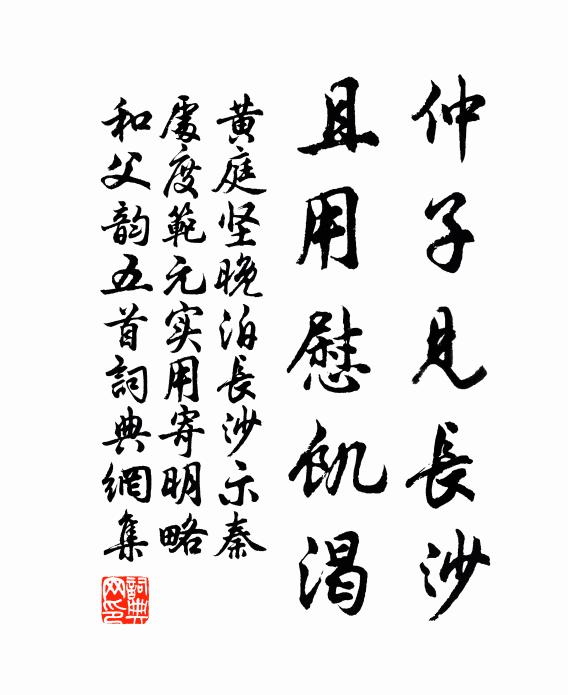 仲子見長沙
且用慰飢渴
黄庭坚晚泊長沙示秦
處度範元实用寄明略
和父韵五首詞典網集
詞典网印